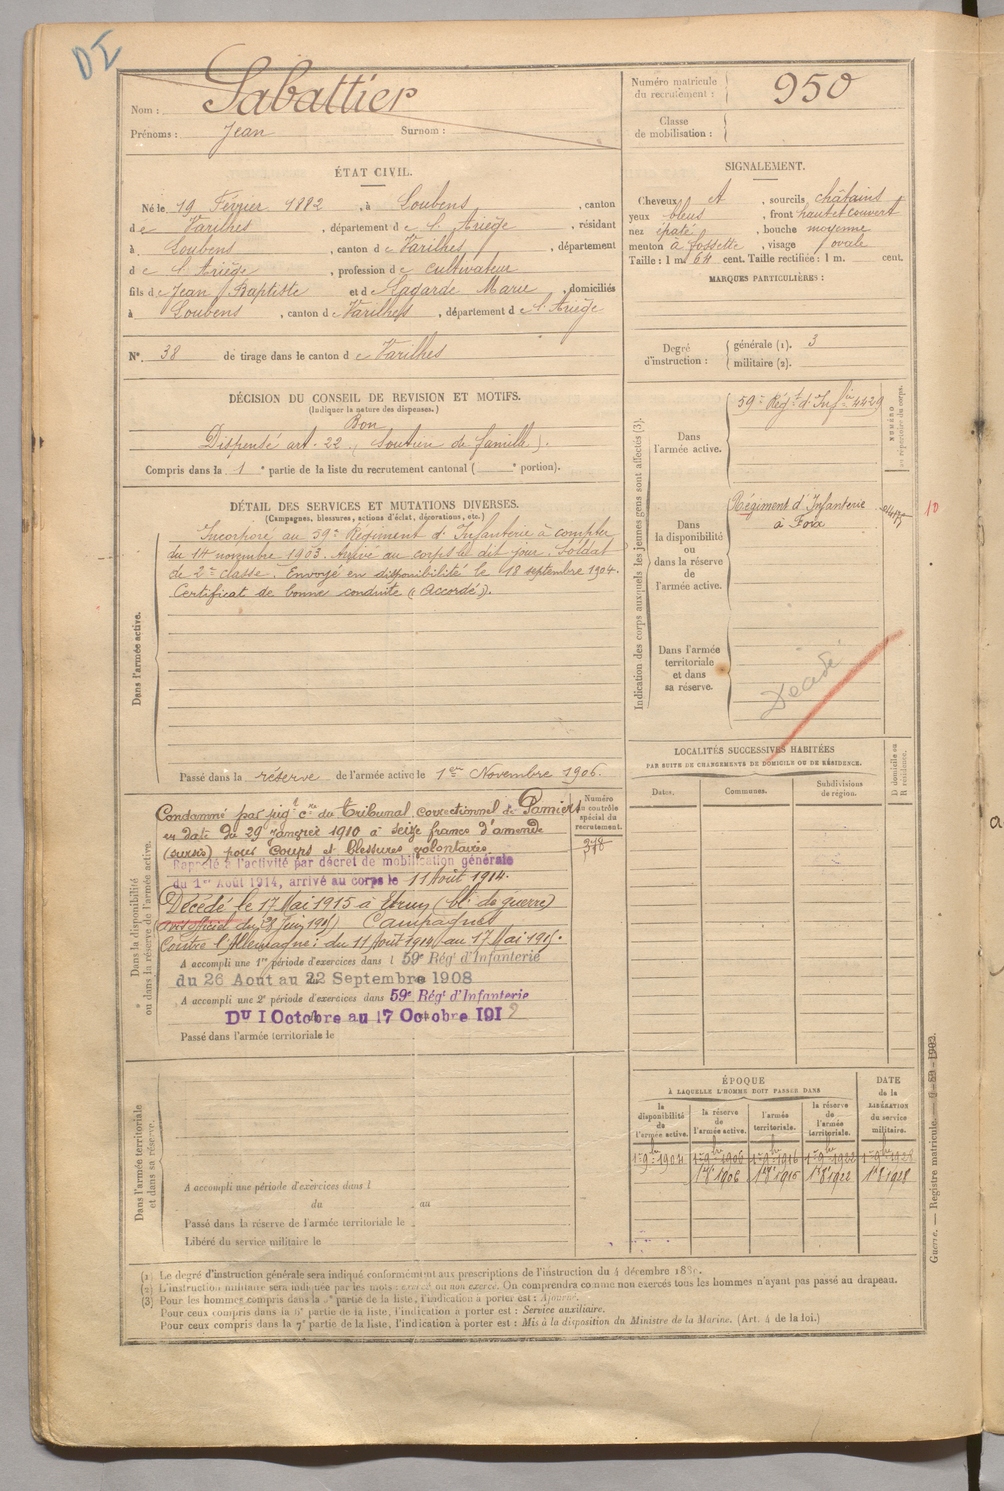 DI
Nom : Sabattier
Prénoms : Jean Surnom :
Numéro matricule du recrutement : 950
Classe de mobilisation :
ÉTAT CIVIL.
Né le 19 Février 1882, à Loubens, canton
de Varilhes, département de l'Ariège, résidant
à Loubens, canton de Varilhes, département
de l'Ariège, profession de cultivateur
fils de Jean Baptiste et de Lagarde Marie, domiciliés
à Loubens, canton de Varilhes, département de l'Ariège
N° 38 de tirage dans le canton de Varilhes
SIGNALEMENT.
Cheveux et, sourcils châtains
yeux bleus, front haut et couvert
nez épaté, bouche moyenne
menton à fossette, visage ovale
Taille : 1 m. 64 cent. Taille rectifiée : 1 m. cent.
MARQUES PARTICULIÈRES :
Degré d'instruction : générale (1). 3
militaire (2).
DÉCISION DU CONSEIL DE REVISION ET MOTIFS.
(Indiquer la nature des dispenses.)
Bon
Dispensé art. 22 (soutien de famille).
Compris dans la 1e partie de la liste du recrutement cantonal ( e portion).
DÉTAIL DES SERVICES ET MUTATIONS DIVERSES.
(Campagnes, blessures, actions d'éclat, décorations, etc.)
Dans l'armée active.
Incorporé au 59e Régiment d'Infanterie à compter
du 14 novembre 1903. Arrivé au corps le dit jour. Soldat
de 2e classe. Envoyé en disponibilité le 18 septembre 1904.
Certificat de bonne conduite "Accordé".
Passé dans la réserve de l'armée active le 1er Novembre 1906.
Indication des corps auxquels les jeunes gens sont affectés (3).
NUMÉRO au répertoire du corps.
Dans l'armée active.
59e Régt d'Infie 4429
Dans la disponibilité ou dans la réserve de l'armée active.
Régiment d'Infanterie
à Foix
10
Dans l'armée territoriale et dans sa réserve.
Décédé
LOCALITÉS SUCCESSIVES HABITÉES
PAR SUITE DE CHANGEMENTS DE DOMICILE OU DE RÉSIDENCE.
D domicile ou R résidence.
Dates. Communes. Subdivisions de région.
Dans la disponibilité ou dans la réserve de l'armée active.
Numéro au contrôle spécial du recrutement.
Condamné par jugt ce du Tribunal correctionnel de Pamiers
en date du 29 janvier 1910 à seize francs d'amende
(sursis) pour Coups et blessures volontaires.
Rappelé à l'activité par décret de mobilisation générale
du 1er Août 1914, arrivé au corps le 11 Août 1914.
Décédé le 17 Mai 1915 à Etrun (bl. de guerre)
(avis officiel du 28 Juin 1915) Campagnes
Contre l'Allemagne : du 11 Août 1914 au 17 Mai 1915.
A accompli une 1re période d'exercices dans l 59e Régt d'Infanterie
du 26 Aout au 22 Septembre 1908
A accompli une 2e période d'exercices dans 59e Régt d'Infanterie
Du 1 Octobre au 17 Octobre 1912
Passé dans l'armée territoriale le
Dans l'armée territoriale et dans sa réserve.
A accompli une période d'exercices dans l
du au
Passé dans la réserve de l'armée territoriale le
Libéré du service militaire le
ÉPOQUE
À LAQUELLE L'HOMME DOIT PASSER DANS
DATE de la LIBÉRATION du service militaire.
la disponibilité de l'armée active.
la réserve de l'armée active.
l'armée territoriale.
la réserve de l'armée territoriale.
1er 9bre 1904 1er 9bre 1906 1er 9bre 1916 1er 9bre 1922 1er 9bre 1928
1er 8 1906 1er 8 1915 1er 8 1922 1er 8 1928
(1) Le degré d'instruction générale sera indiqué conformément aux prescriptions de l'instruction du 4 décembre 1889.
(2) L'instruction militaire sera indiquée par les mots : exercé ou non exercé. On comprendra comme non exercés tous les hommes n'ayant pas passé au drapeau.
(3) Pour les hommes compris dans la partie de la liste, l'indication à porter est : Ajourné.
Pour ceux compris dans la 6e partie de la liste, l'indication à porter est : Service auxiliaire.
Pour ceux compris dans la 7e partie de la liste, l'indication à porter est : Mis à la disposition du Ministre de la Marine. (Art. 4 de la loi.)
Guerre. — Registre matricule.